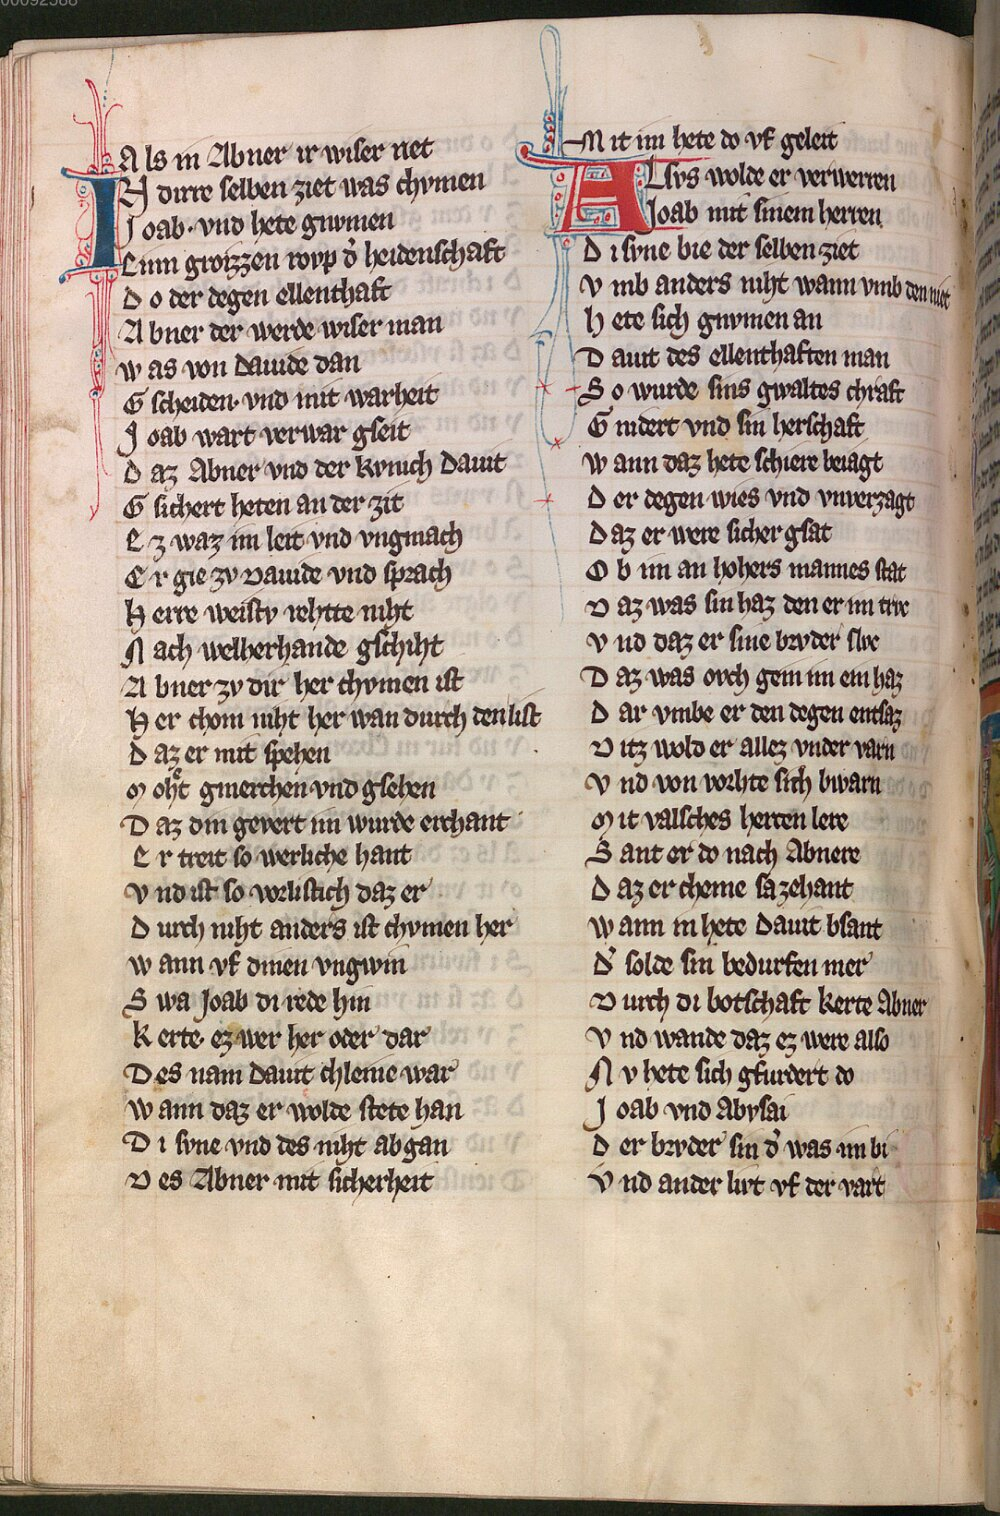 00092588
A ls in Abner ir wiser riet
IN dirre selben ziet was chvmen
J oab· vnd hete gnvmen
E inn groizzen rovp d̾ heidenschaft
D o der degen ellenthaft
A bner der werde wiser man
W as von Dauide dan
G scheiden· vnd mit warheit
J oab wart verwar gseit
D az Abner vnd der kvnich Dauit
G sichert heten an der zit
E z waz im leit vnd vngmach
E r gie zv Dauide vnd sprach
H erre weistv rehtte niht
N ach welherhande gschiht
A bner zv dir her chvmen ist
H er chom niht her wan durch den list
D az er mit spehen
M oht̾ gmerchen vnd gsehen
D az din gevert im wurde erchant
E r treit so werliche hant
V nd ist so vorlistich daz er
D urch niht anders ist chvmen her
W ann vf dinen vngwin
S wa Joab di rede hin
K erte· ez wer her oder dar
D es nam Dauit chleine war
W ann daz er wolde stete han
D i svne vnd des niht ab gan
D es Abner mit sicherheit
M it im hete do vf geleit
ALsvs wolde er verwerren
Joab mit sinem herren
D i svne bie der selben ziet
V mb anders niht wann vmb den niet
H ete sich gnvmen an
D auit des ellenthaften man
S o wurde sins gwaltes chraft
G nidert vnd sin herschaft
W ann daz hete schiere beiagt
D er degen wies vnd vnverzagt
D az er were sicher gsat
O b im an hohers mannes stat
D az was sin haz den er im trvc
V nd daz er sine brvder slvc
D az was ovch gein im ein haz
D ar vmbe er den degen entsaz
D itz wold er allez vnder varn
V nd von vorhte sich bwarn
M it valsches herten lere
S ant er do nach Abnere
D az er cheme sa zehant
W ann in hete Dauit bsant
D̾ solde sin bedurfen mer
D urch di botschaft kerte Abner
V nd wande daz ez were also
N v hete sich gfurdert do
J oab vnd Abysai
D er brvder sin d̾ was im bi
V nd ander livt vf der vart